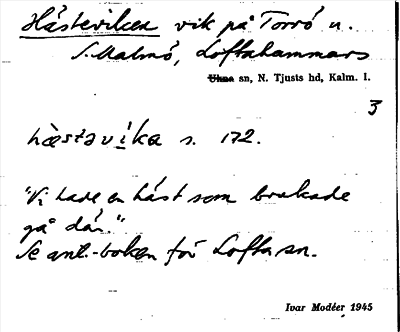 Hästeviken vik på Torrö u.
S. Malmö, Loftahammars
Ukna sn, N. Tjusts hd, Kalm. l.
3
hæstavika s. 172.
"Vi hade en häst som brukade
gå där."
Se ant.-boken för Lofta sn.
Ivar Modéer 1945